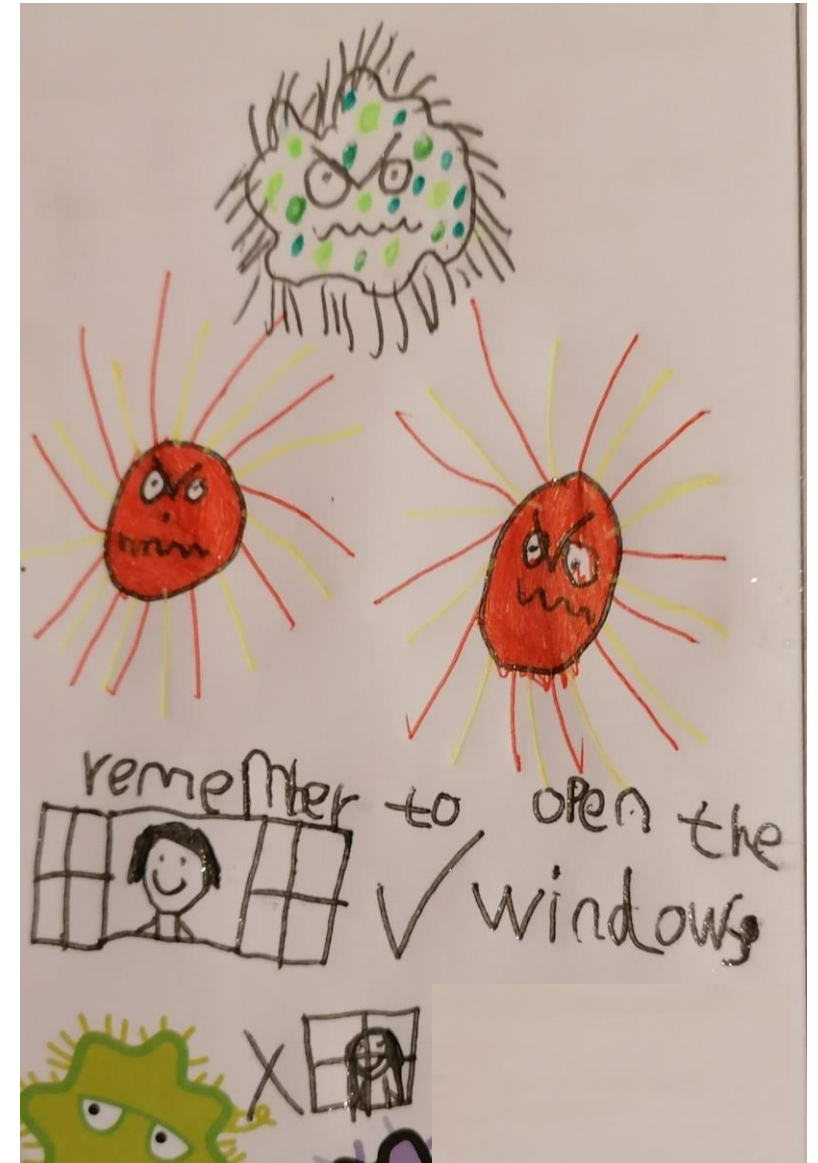 remember to open the
windows